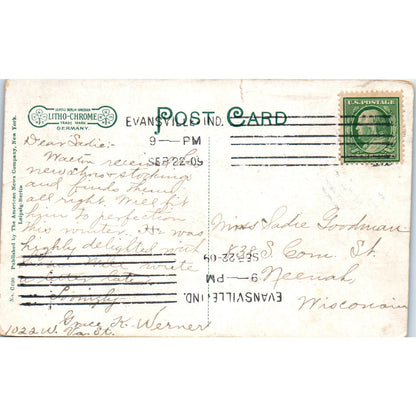 LEIPZIG BERLIN DRESDEN
LITHO-CHROME
TRADE MARK
GERMANY.
POST CARD
U.S. POSTAGE
EVANSVILLE IND.
9—PM
SEP 22-09
Dear Sadie:-
Walter received
new shoes + stocking
and finds them
all right. Will fit
him to perfection
this winter. He was
highly delighted with
them. Will write
a letter later.
Lovingly
Grace K. Werner
1022 W. Va. St.
Miss Sadie Goodman
832 S. Com. St.
Neenah,
Wisconsin
EVANSVILLE IND.
9—PM
SEP 22-09
Published by The American News Company, New York.
Leipzig, Berlin